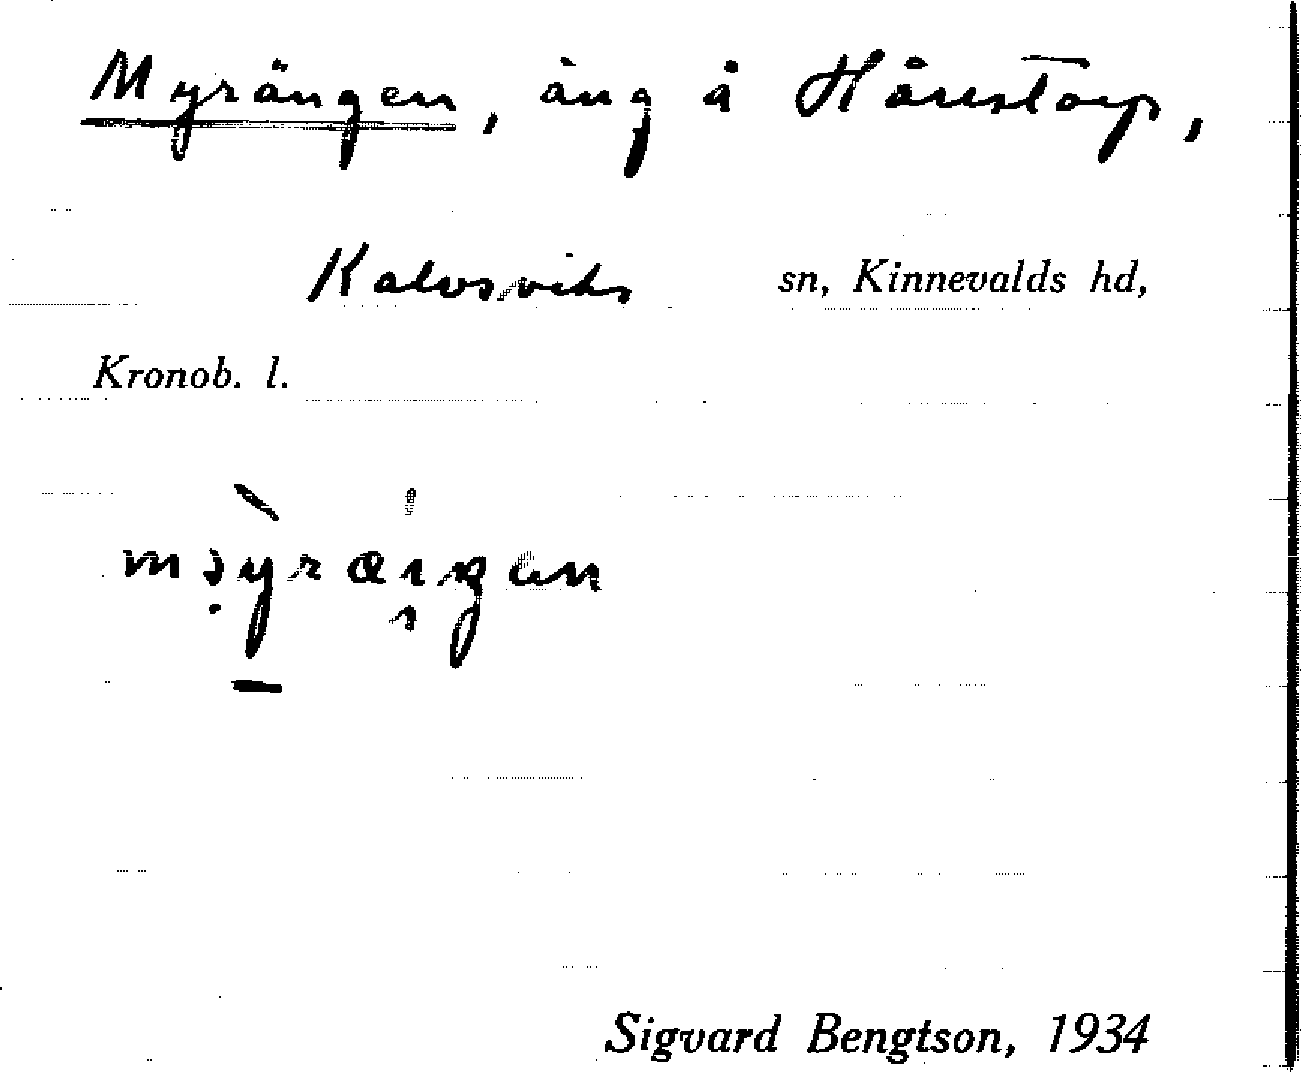 Myrängen, äng å Hårestorp,
Kalvsviks sn, Kinnevalds hd,
Kronob. l.
Sigvard Bengtson, 1934